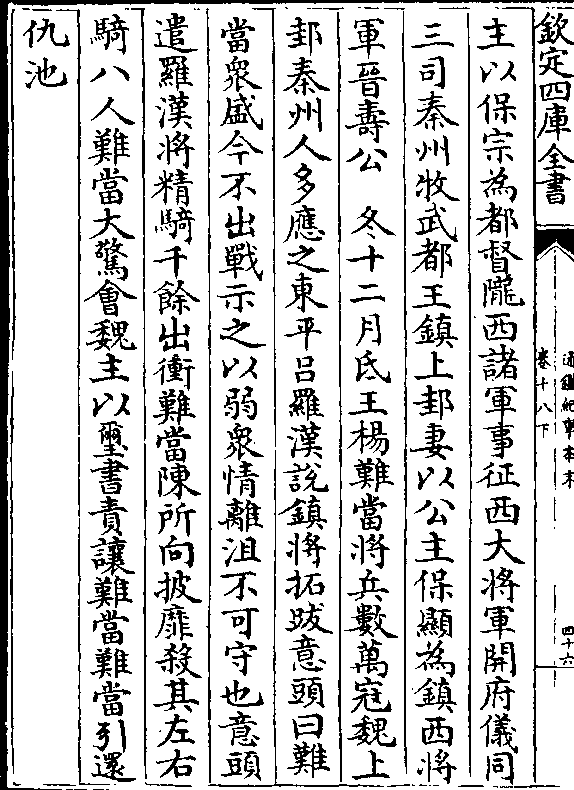 欽定四庫全書
通鑑紀事本末
卷十八下
四十六
主以保宗為都督隴西諸軍事征西大將軍開府儀同
三司秦州牧武都王鎮上邽妻以公主保顯為鎮西將
軍晉壽公　冬十二月氐王楊難當將兵數萬寇魏上
邽秦州人多應之東平呂羅漢說鎮將拓跋意頭曰難
當衆盛今不出戰示之以弱衆情離沮不可守也意頭
遣羅漢將精騎千餘出衝難當陳所向披靡殺其左右
騎八人難當大驚會魏主以璽書責讓難當難當引還
仇池